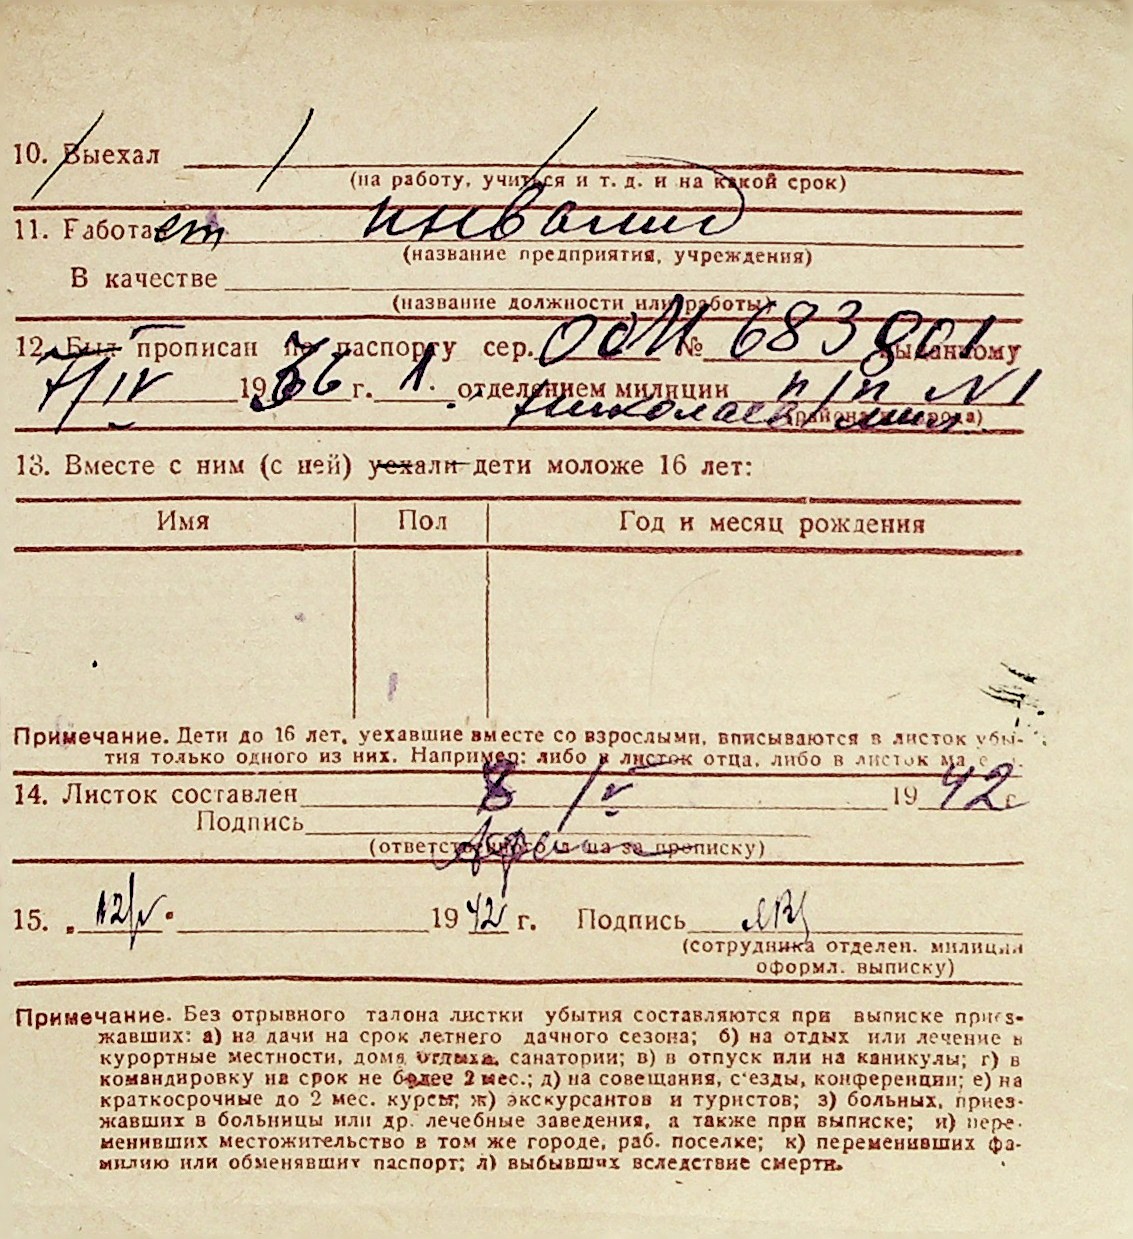 10. Выехал
(на работу, учиться и т. д. и на какой срок)
11. Работает инвалид
(название предприятия, учреждения)
В качестве
(название должности или работы)
12. Был прописан по паспорту сер. № 683801 выданному
7/IV 1936 г. 1. отделением милиции п/п N 1
Николаев
13. Вместе с ним (с ней) уехали дети моложе 16 лет:
Имя Пол Год и месяц рождения
Примечание. Дети до 16 лет, уехавшие вместе со взрослыми, вписываются в листок убы-
тия только одного из них. Например: либо в листок отца, либо в листок
14. Листок составлен 8/V 1942 г
Подпись
(ответственного лица за прописку)
15. „12/V" 1942 г. Подпись
(сотрудника отделен. милиции
оформл. выписку)
Примечание. Без отрывного талона листки убытия составляются при выписке приез-
жавших: а) на дачи на срок летнего дачного сезона; б) на отдых или лечение в
курортные местности, дома отдыха, санатории; в) в отпуск или на каникулы; г) в
командировку на срок не более 2 мес.; д) на совещания, с'езды, конференции; е) на
краткосрочные до 2 мес. курсы; ж) экскурсантов и туристов; з) больных, приез-
жавших в больницы или др. лечебные заведения, а также при выписке; и) пере-
менивших местожительство в том же городе, раб. поселке; к) переменивших фа-
милию или обменявших паспорт; л) выбывших вследствие смерти.